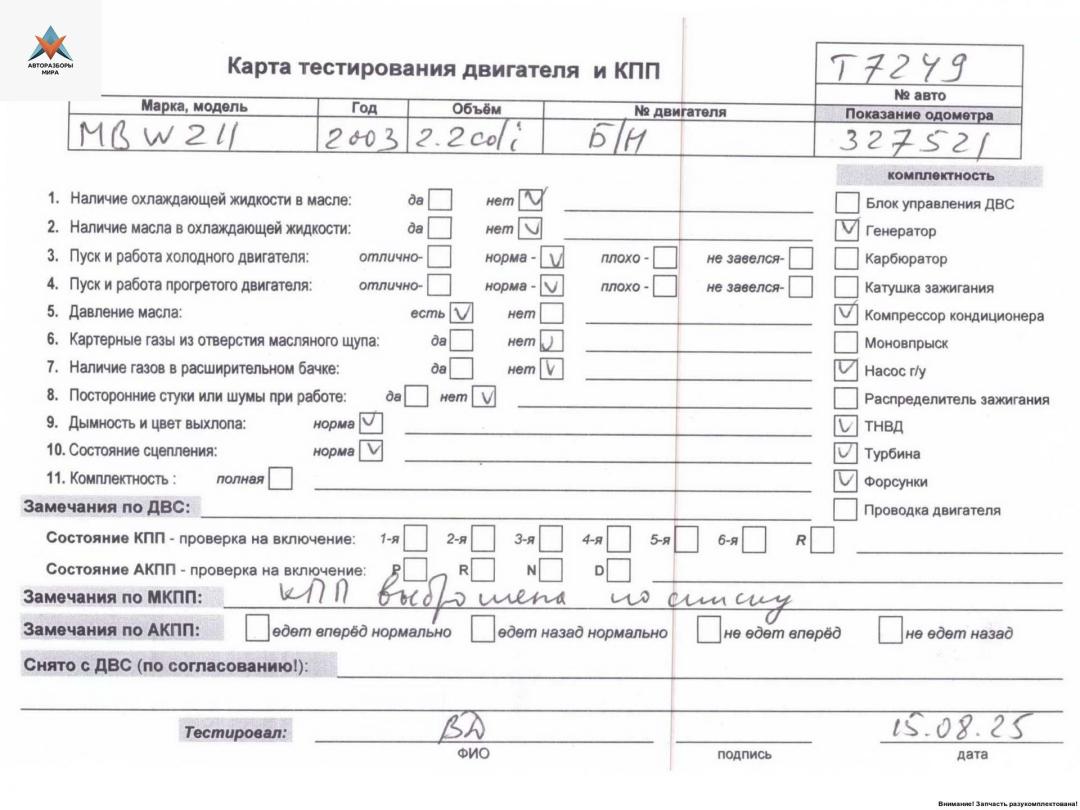 АВТОРАЗБОРЫ
МИРА
Карта тестирования двигателя и КПП
T7249
№ авто
Марка, модель Год Объём № двигателя Показание одометра
MB W211 2003 2.2cdi Б/Н 327521
комплектность
1. Наличие охлаждающей жидкости в масле: да нет
Блок управления ДВС
2. Наличие масла в охлаждающей жидкости: да нет
Генератор
3. Пуск и работа холодного двигателя: отлично- норма - плохо - не завелся-
Карбюратор
4. Пуск и работа прогретого двигателя: отлично- норма - плохо - не завелся-
Катушка зажигания
5. Давление масла: есть нет
Компрессор кондиционера
6. Картерные газы из отверстия масляного щупа: да нет
Моновпрыск
7. Наличие газов в расширительном бачке: да нет
Насос г/у
8. Посторонние стуки или шумы при работе: да нет
Распределитель зажигания
9. Дымность и цвет выхлопа: норма
ТНВД
10. Состояние сцепления: норма
Турбина
11. Комплектность : полная
Форсунки
Замечания по ДВС:
Проводка двигателя
Состояние КПП - проверка на включение: 1-я 2-я 3-я 4-я 5-я 6-я R
Состояние АКПП - проверка на включение: P R N D
Замечания по МКПП: КПП выброшена по списку
Замечания по АКПП: едет вперёд нормально едет назад нормально не едет вперёд не едет назад
Снято с ДВС (по согласованию!):
Тестировал: ВД 15.08.25
ФИО подпись дата
Внимание! Запчасть разукомплектована!